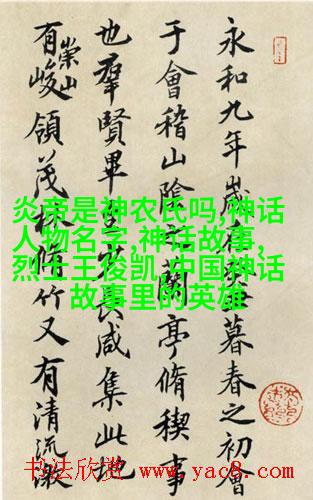 永和九年歲在癸丑暮春之初會
于會稽山陰之蘭亭脩稧事
也羣賢畢至少長咸集此地
有崇山峻領茂林脩竹又有清流激
炎帝是神农氏吗,神话
人物名字,神话故事,
烈士王俊凯,中国神话
故事里的英雄
书法欣赏 www.yac8.com